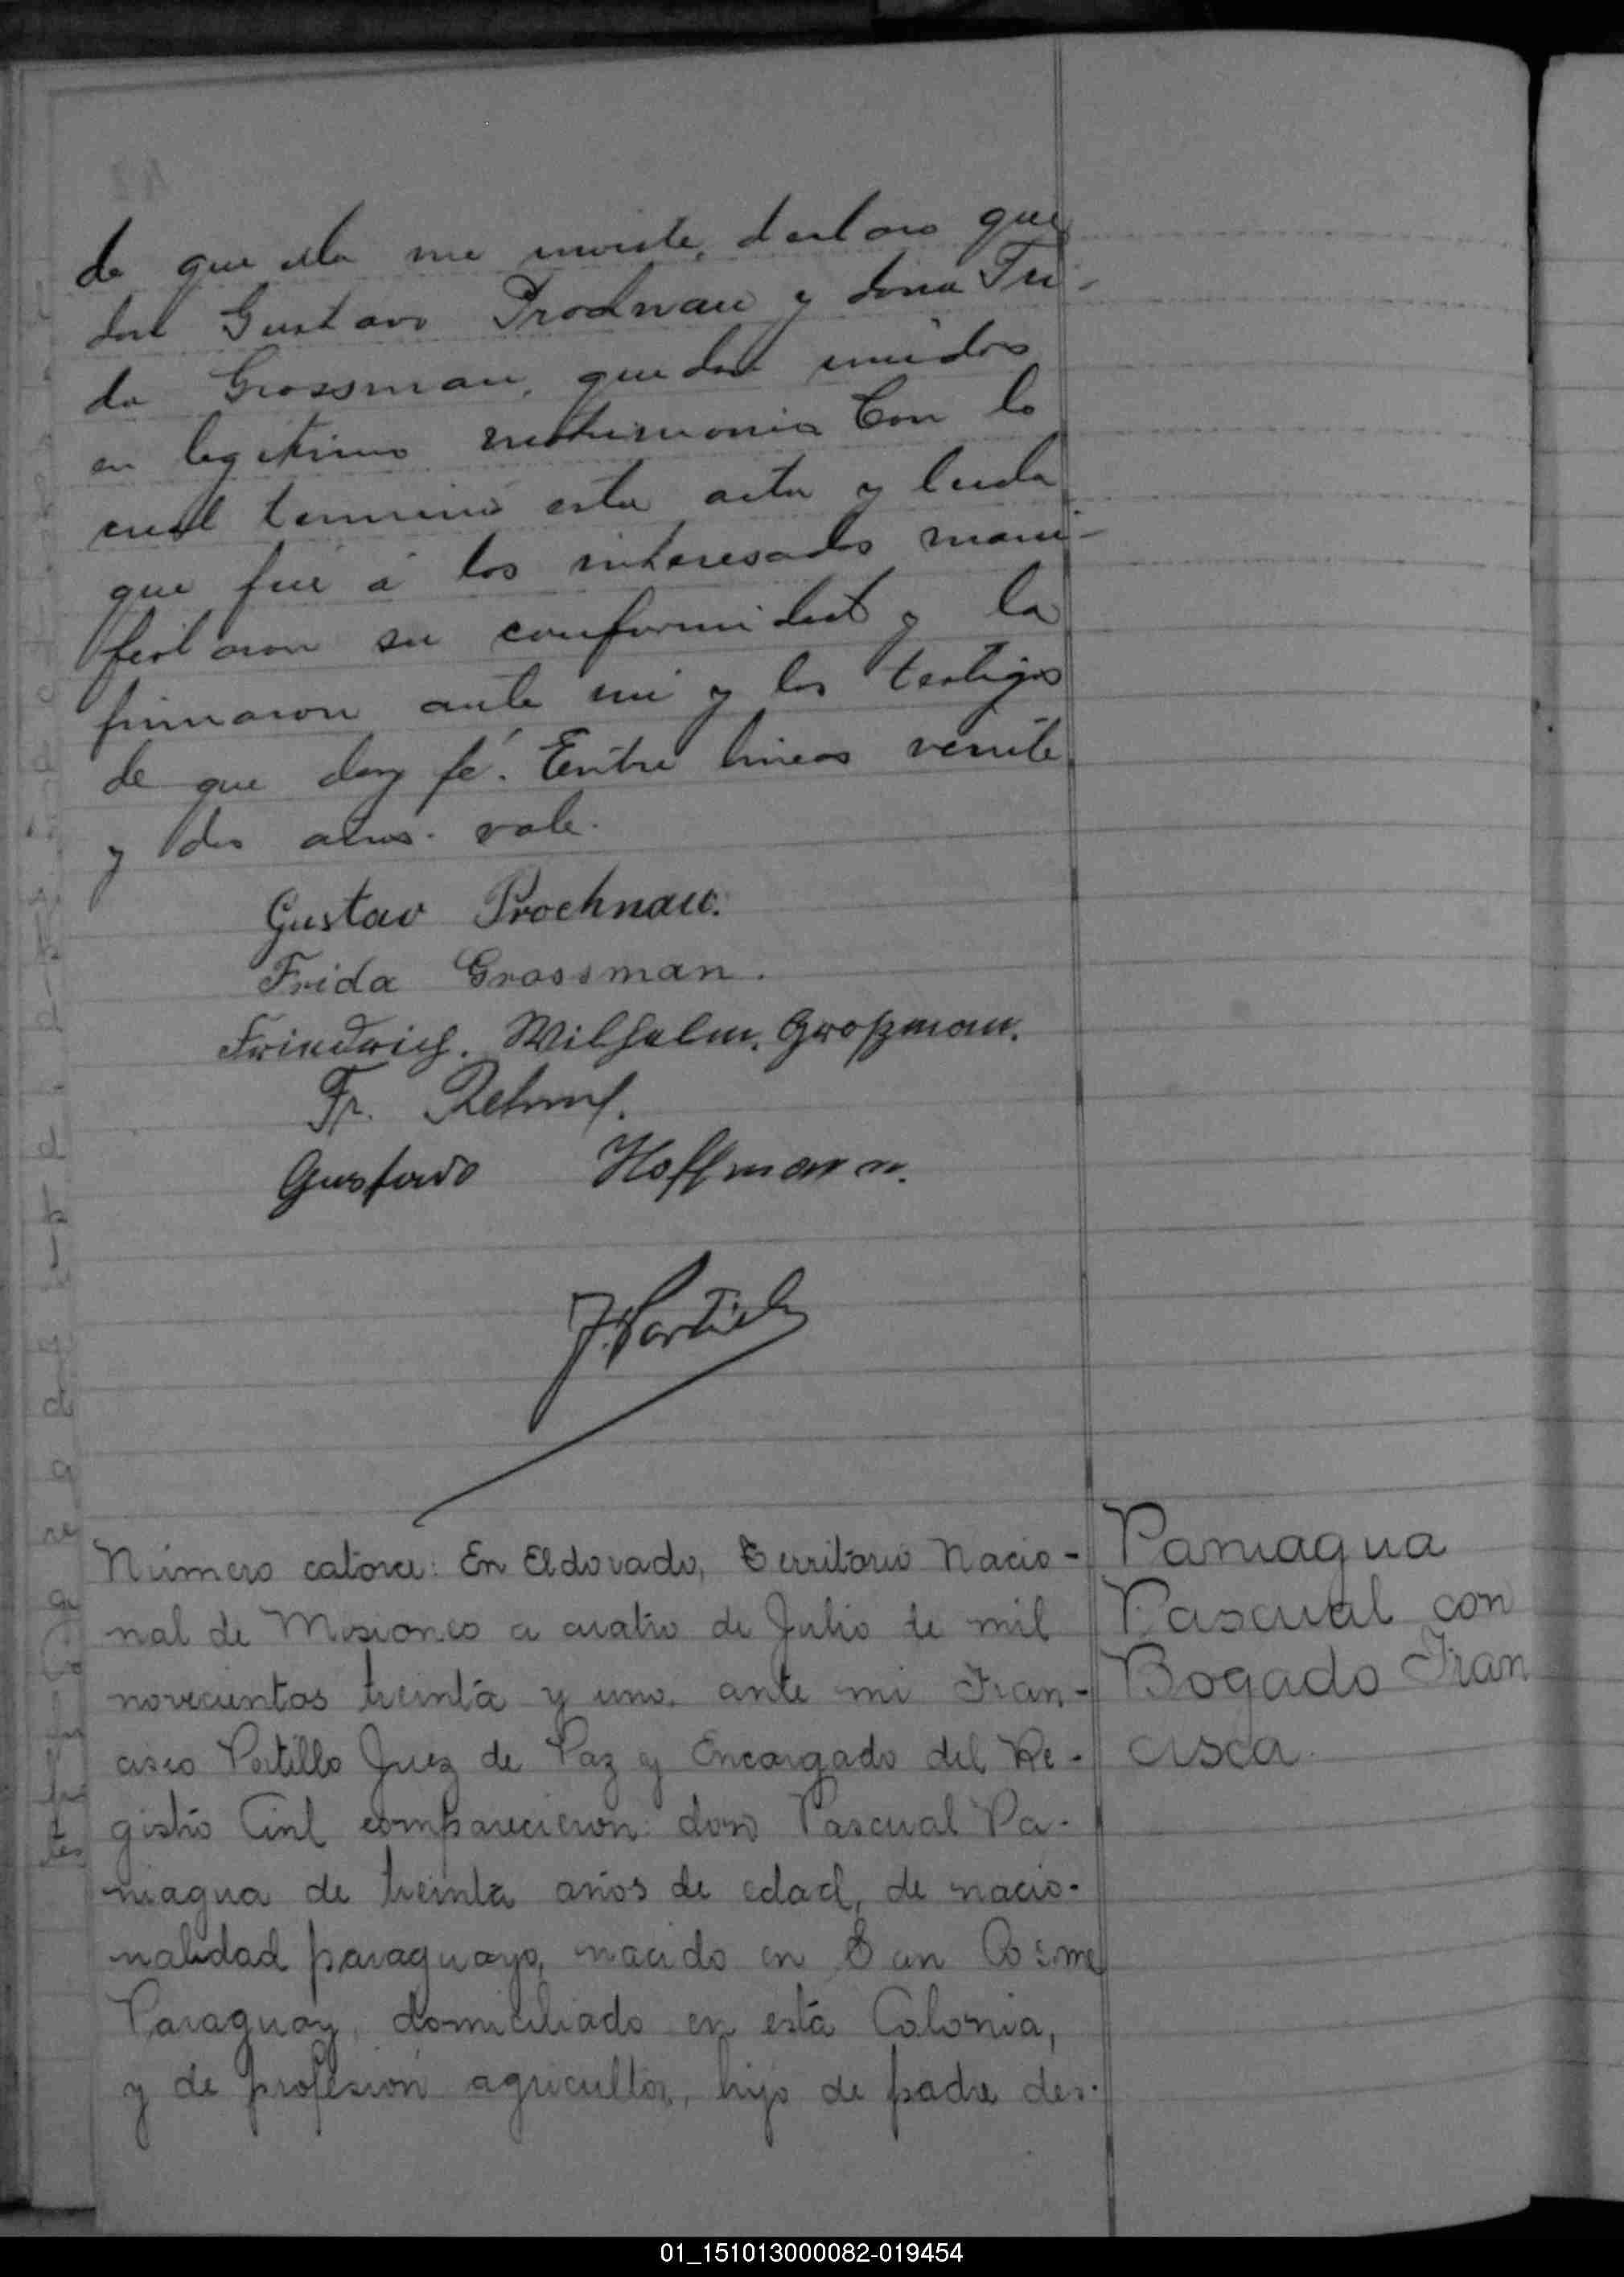 de que ella me inviste, declaro que
don Gustavo Prochnau y doña Fri-
da Grossman, quedan unidos
en legitimo matrimonio Con lo
cual terminó esta acta y leida
que fué á los interesados mani-
festaron su conformidad y la
firmaron ante mi y los testigos
de que doy fé. Entre lineas veinte
y dos años. vale.
Gustav Prochnau.
Frida Grossman.
Friedrich. Wilhelm. Großmann.
Fr.
Gustavo Hoffmann.
F. Portillo
Número catorce: En Eldorado, Territorio Nacio-
nal de Misiones a cuatro de Julio de mil
novecientos treinta y uno, ante mi Fran-
cisco Portillo Juez de Paz y Encargado del Re-
gistro Civil comparecieron: don Pascual Pa-
niagua de treinta años de edad, de nacio-
nalidad paraguayo, nacido en San Cosme
Paraguay, domiciliado en esta Colonia,
y de profesión agricultor, hijo de padre des-
Paniagua
Pascual con
Bogado Fran
cisca.
01_151013000082-019454